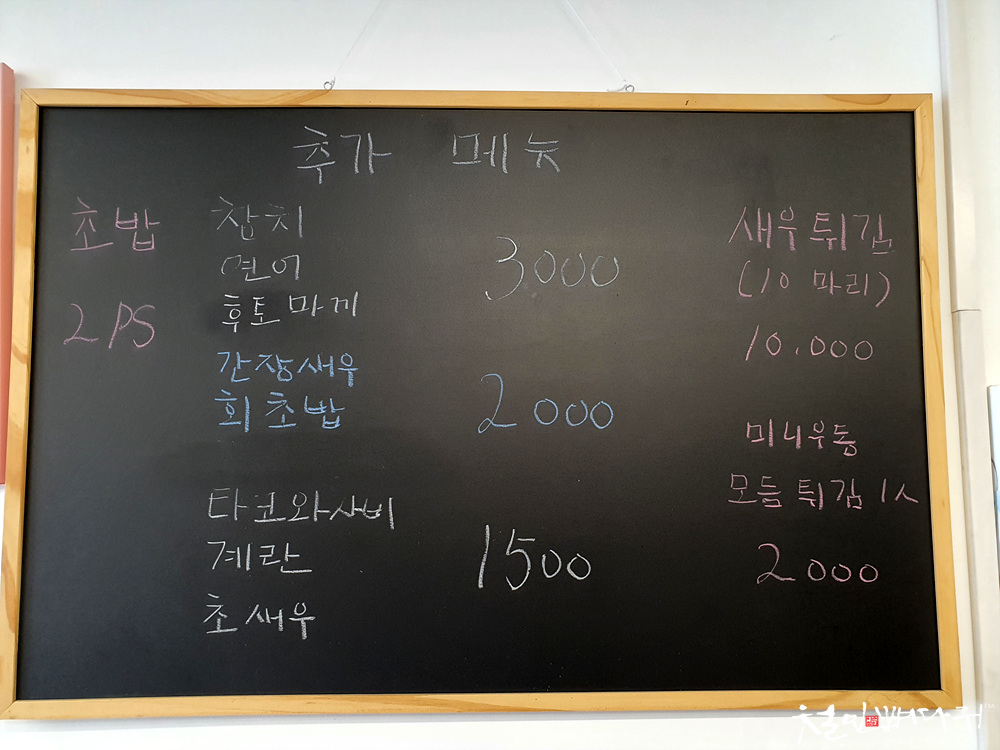 추가 메뉴
초밥
2PS
참치
연어
후토마끼
3000
간장새우
회초밥
2000
타코와사비
계란
초새우
1500
새우튀김
(10마리)
10.000
미니우동
모듬튀김 1人
2000